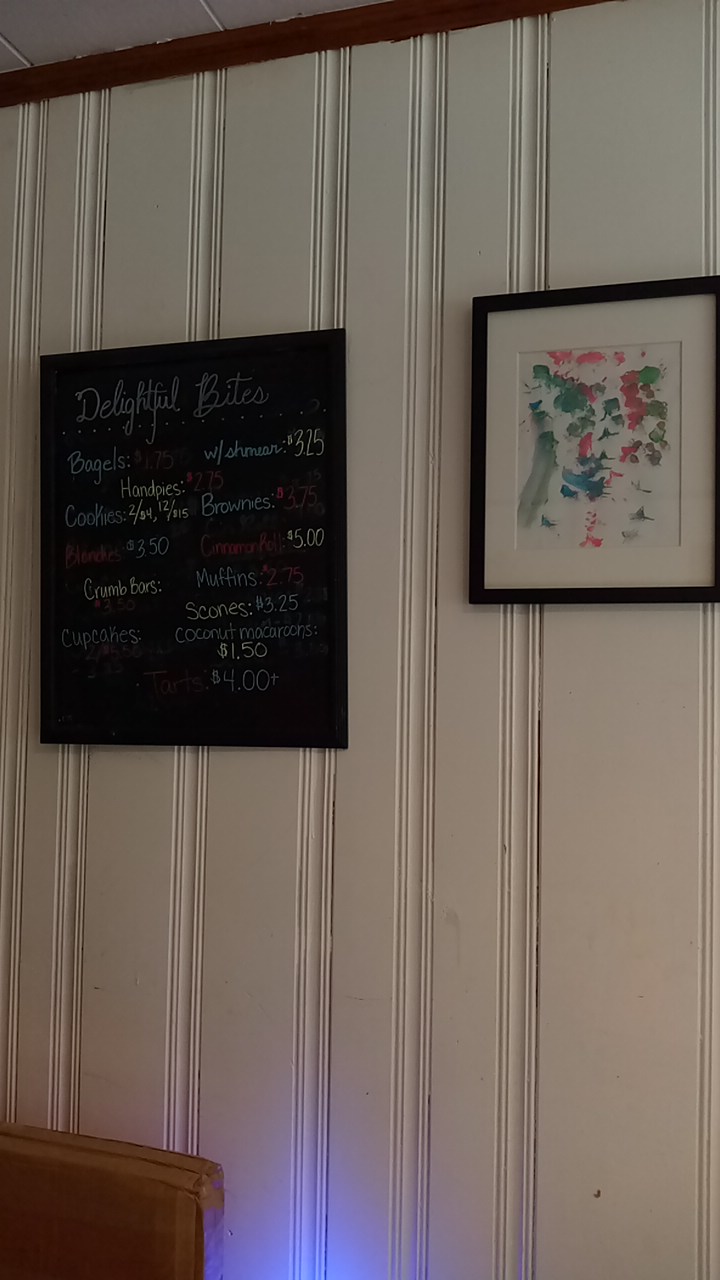 Delightful Bites
Bagels: $1.75 w/shmear: $3.25
Handpies: $2.75
Cookies: 2/$4, 12/$15 Brownies: $3.75
Blondies $3.50 Cinnamon Roll: $5.00
Crumb Bars: Muffins: $2.75
$3.50 Scones: $3.25
Cupcakes: Coconut macaroons:
$1.50
Tarts: $4.00+